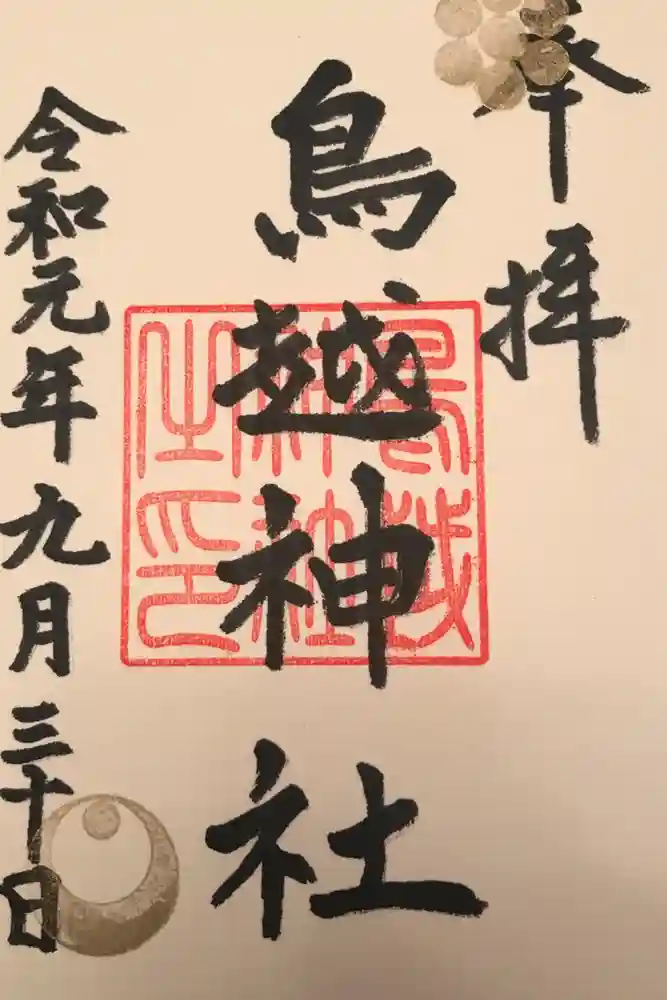 奉拝
鳥越神社
鳥越神社之印
令和元年九月三十日